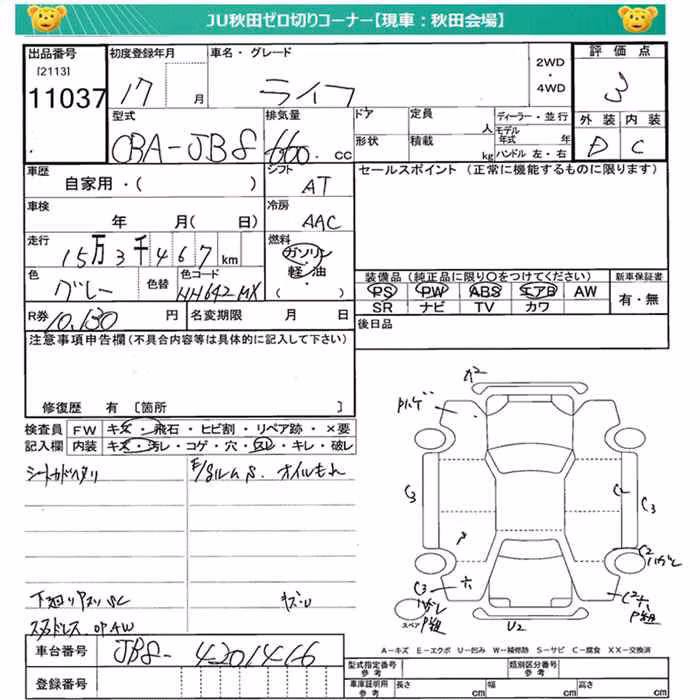 JU秋田ゼロ切りコーナー【現車：秋田会場】
出品番号 [2113] 11037
初度登録年月 17 月
車名・グレード ライフ
2WD・4WD
評価点 3
型式 CBA-JB8
排気量 660 cc
ドア 定員 人
形状 積載 kg
ディーラー・並行
モデル年式 年
ハンドル 左・右
外装 内装
D C
車歴 自家用・( )
シフト AT
セールスポイント (正常に機能するものに限ります)
車検 年 月( 日)
冷房 AAC
走行 15万3千467km
燃料 ガソリン・軽油 ( )
色 グレー 色替
色コード NH642MX
装備品 (純正品に限り〇をつけてください)
PS PW ABS エアB AW
SR ナビ TV カワ
新車保証書 有・無
R券 10,130 円
名変期限 月 日
後日品
注意事項申告欄 (不具合内容等は具体的に記入して下さい)
修復歴 有 [箇所 ]
検査員記入欄
FW キズ・飛石・ヒビ割・リペア跡・×要
内装 キズ・汚レ・コゲ・穴・スレ・キレ・破レ
オイルモレ
下廻り
スタッドレス
A2
C3
C3
C2
C3
C2
U2
スペア
A-キズ E-エクボ U-凹み W-補修跡 S-サビ C-腐食 XX-交換済
車台番号 JB8-4201416
登録番号
型式指定番号 参考
類別区分番号 参考
車庫証明用 参考 長さ cm 幅 cm 高さ cm